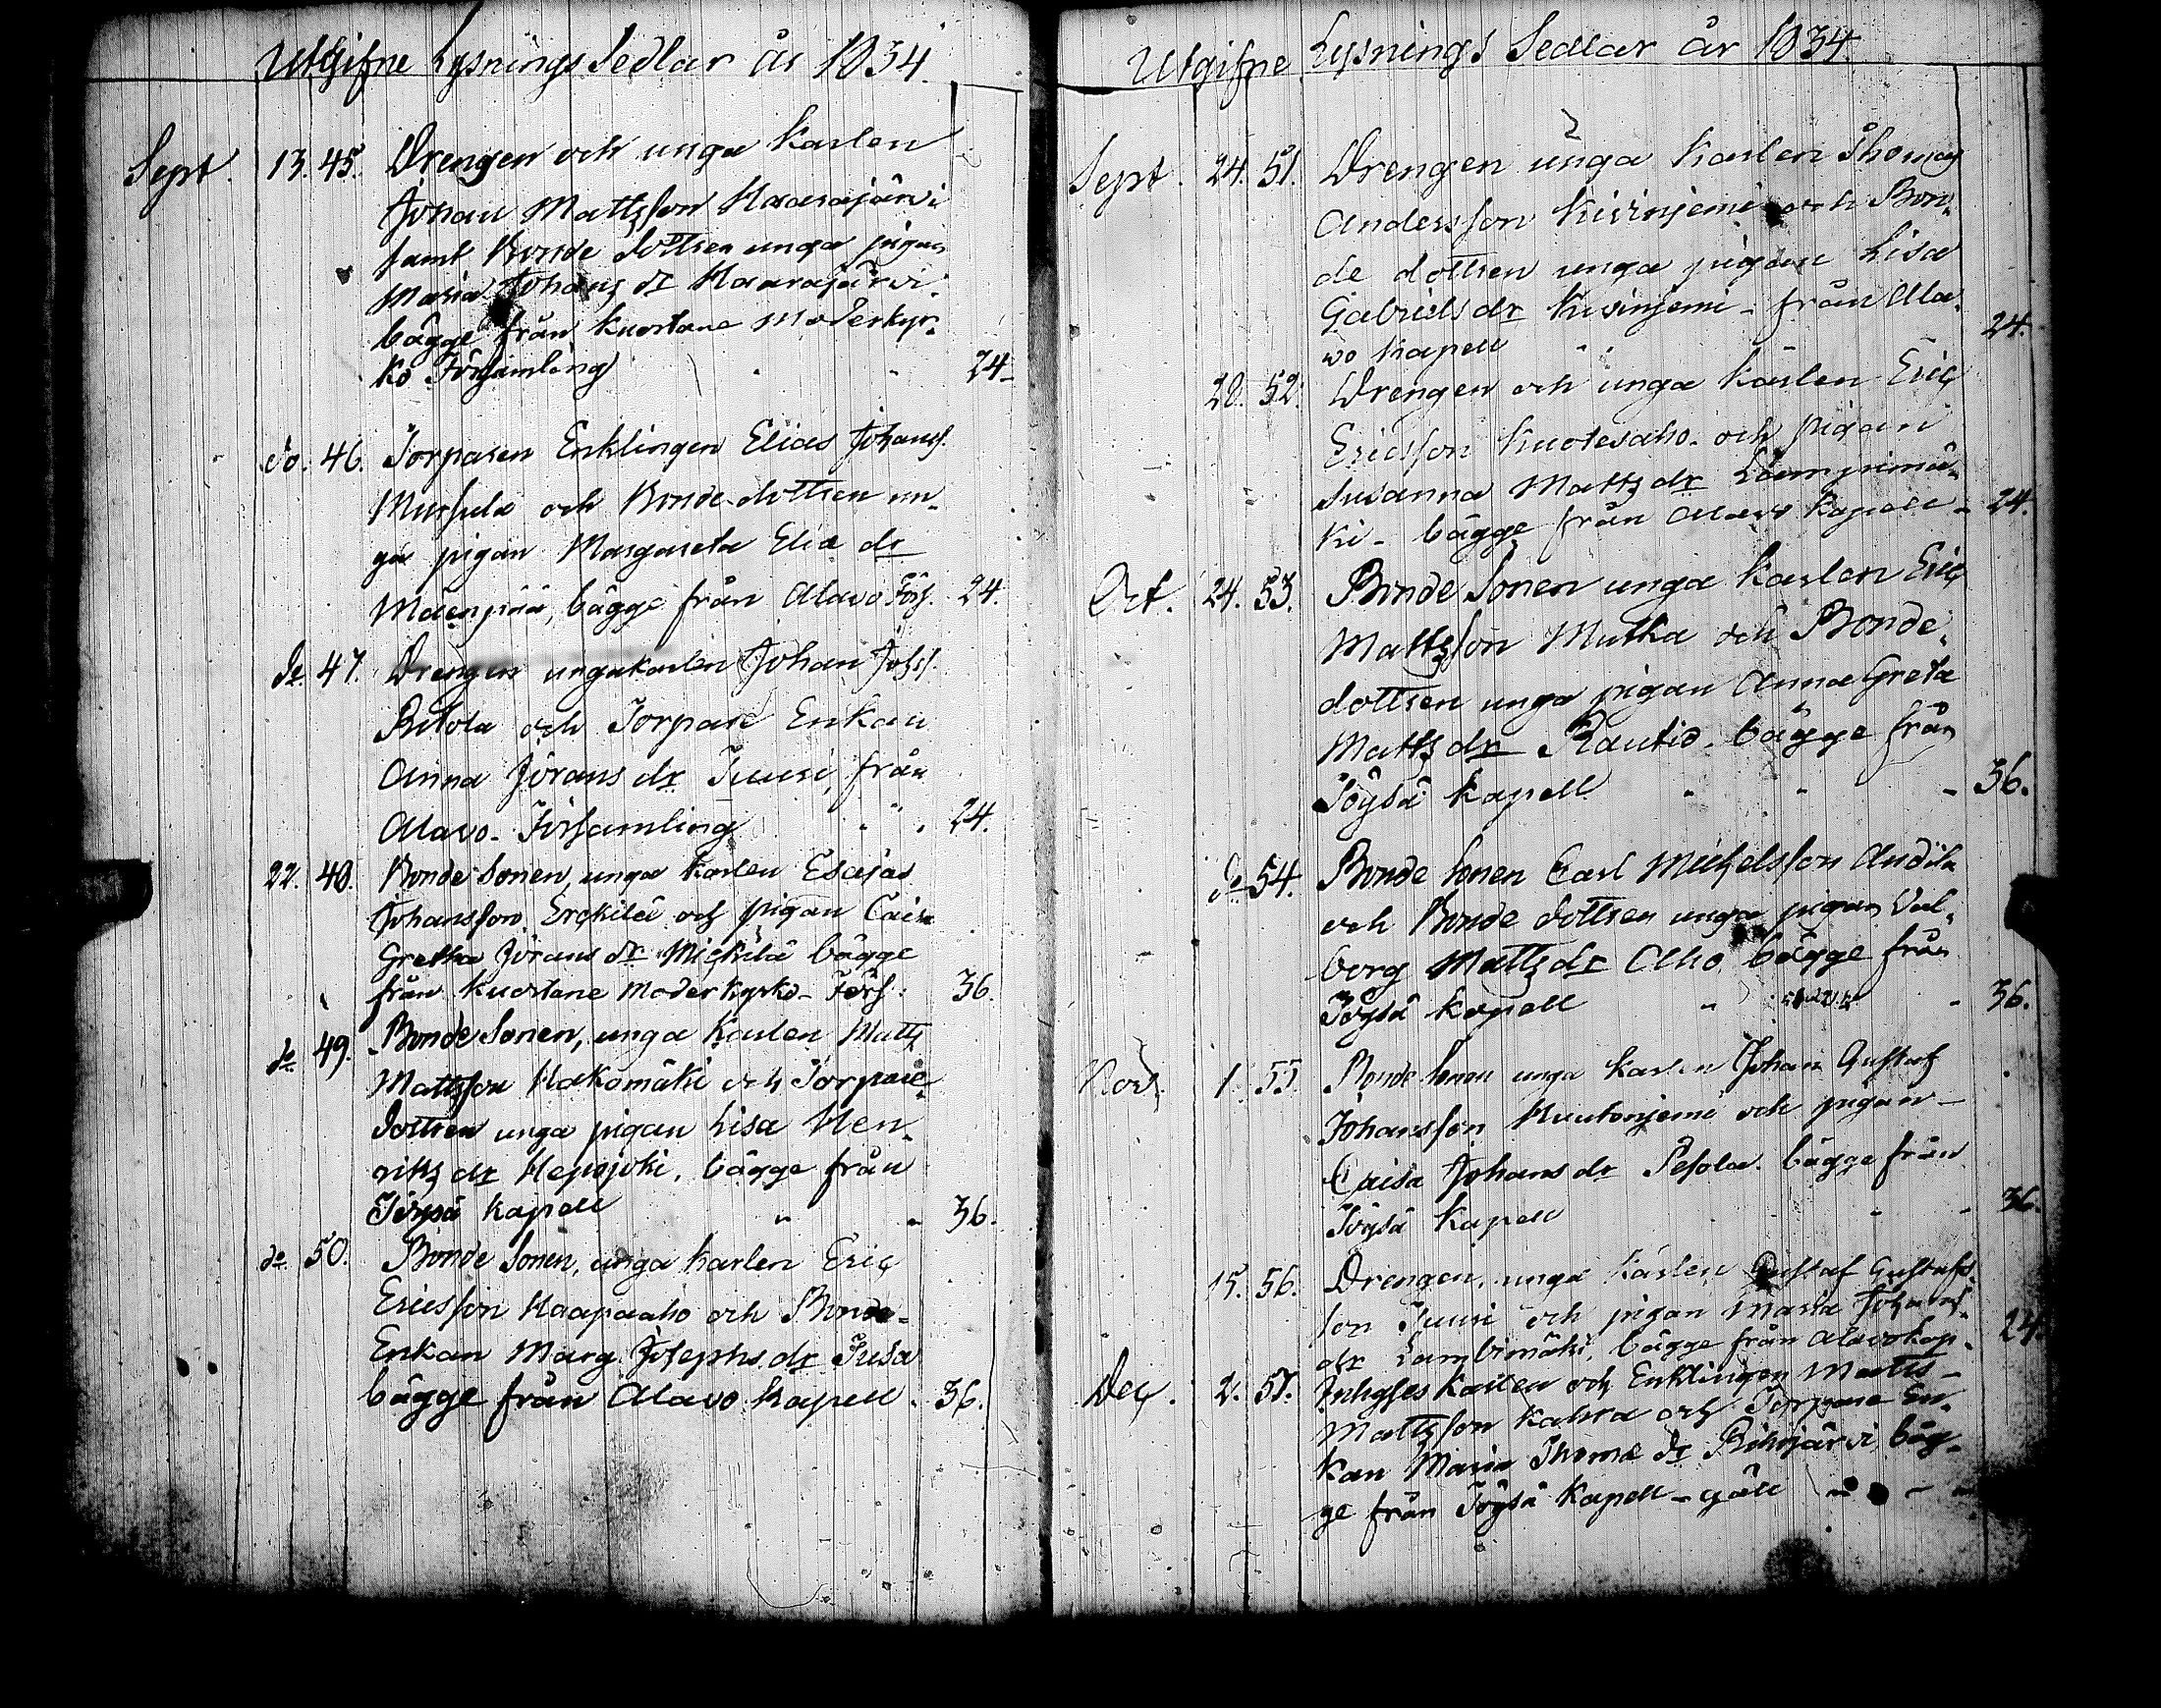 Utgifne Lysnings Sedlar år 1834.
Sept. 13. 45. Drengen och unga Karlen
Johan Mattsson Haarajärvi
samt Bonde dottren unga pigan
Maria Johans dr Haarajärvi
bägge från Kuortane Moderkyr-
ko Församling 24.
do. 46. Torparen Enklingen Elias Johanss.
och Bonde dottren un-
ga pigan Margareta Eliæ dr
Mäenpää, bägge från Alavo Förs. 24.
do. 47. Drengen ungakarlen Johan Johss.
Ritola och Torpare Enkan
Anna Jörans dr Tuuri, från
Alavo Församling 24.
22. 48. Bonde Sonen, unga Karlen Esajas
Johansson Erckilä och pigan Caisa
Gretha Jörans dr Mickilä bägge
från Kuortane Moderkyrko Förs: 36.
do 49. Bonde Sonen, unga Karlen Matts
Mattsson Hakomäki och Torpare
dottren unga pigan Lisa Hen-
riks dr Hepojoki, bägge från
Töysä Kapell 36.
do. 50. Bonde Sonen, unga Karlen Eric
Ericsson Haapaaho och Bonde-
Enkan Marg. Josephs dr Tusa
bägge från Alavo Kapell. 36.
Utgifne Lysnings Sedlar år 1834.
Sept. 24. 51. Drengen unga Karlen Thomas
Andersson Kivinjemi och Bon-
de dottren unga pigan Lisa
Gabriels dr Kivinjemi - från Ala-
vo Kapell 24.
28. 52. Drengen och unga Karlen Eric
Ericsson Kuotesaho och pigan
Susanna Matts dr Lampimä-
ki - bägge från Alavo Kapell - 24.
Oct. 24. 53. Bonde Sonen unga Karlen Eric
Mattsson Mutka och Bonde-
dottren unga pigan Anna Greta
Matts dr Rautio bägge från
Töysä Kapell 36.
do 54. Bonde Sonen Carl Michelsson
och Bonde dottren unga pigan Val-
borg Matts dr Aho bägge från
Töysä Kapell 36.
Nov. 1. 55. Bonde Sonen unga Karlen Johan Gustaf
Johansson Kuutonjemi och pigan
Caisa Johans dr Pesola. bägge från
Töysä Kapell 36.
15. 56. Drengen, unga Karlen Gustaf Gustafs-
son Tuuri och pigan Maria Johans
dr Lambimäki, bägge från Alavo kap. 24.
Dec. 2. 57. Inhyses Karlen och Enklingen Matts
Mattsson och Torpare En-
kan Maria Thomæ dr bäg-
ge från Töysä Kapell -